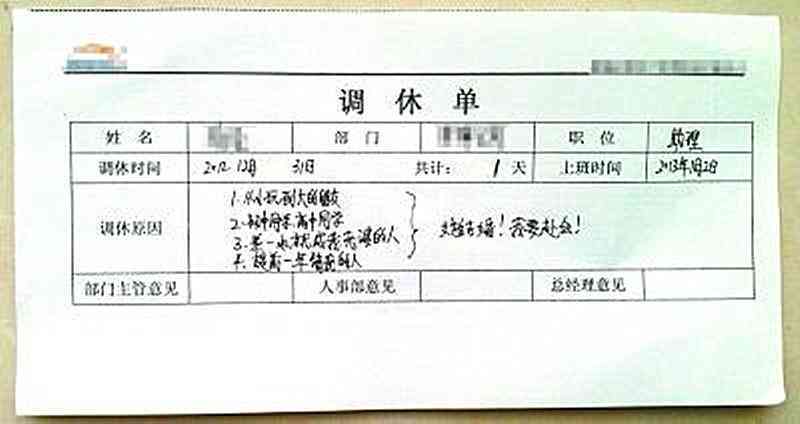 调休单
姓名 部门 职位 助理
调休时间 2012.12月 31日 共计： 1 天 上班时间 2013年1月2日
调休原因
1.从小玩到大的朋友
2.初中同学高中同学
3.第一 的人
4.提前一年 的人
结婚！我要赴会！
部门主管意见 人事部意见 总经理意见